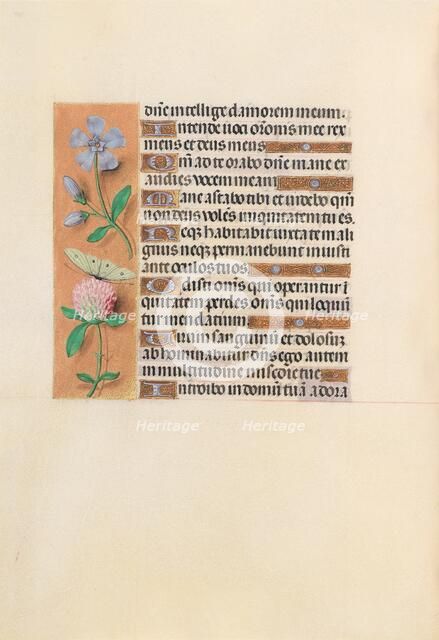 dn̄e intellige clamorem meum :
Intende uoci orōnis mee rex
meus et deus meus
Qm̄ ad te orabo dn̄e mane ex
audies vocem meam
Mane astabo tibi et videbo qm̄
non deus volēs iniquitatem tu es .
Neqꝫ habitabit iuxta te mali
gnus neqꝫ permanebunt iniusti
ante oculos tuos
Odisti om̄s qui operantur ī
quitatem perdes om̄s qui loquū
tur mendatium
Uirum sanguinū et dolosuꝫ
abhominabitur dn̄s ego autem
in multitudine miẽdie tue
Introibo in domū tuā adora
Heritage
Heritage
Heritage
Heritage